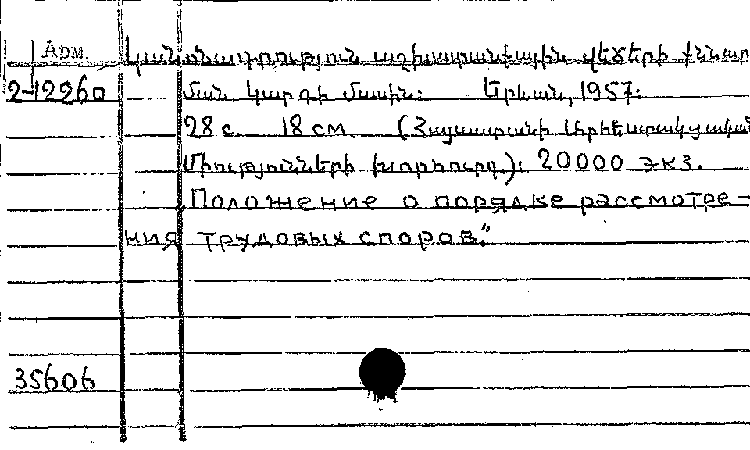 Арм. Կանոնադրություն աշխատանքային վեճերի քննար
2-12260 ման կարգի մասին: Երևան, 1957:
28 с. 18 см. (Հայաստանի Արհեստակցական
Միությունների խորհուրդ): 20000 экз.
Положение о порядке рассмотре-
ния трудовых споров."
35606